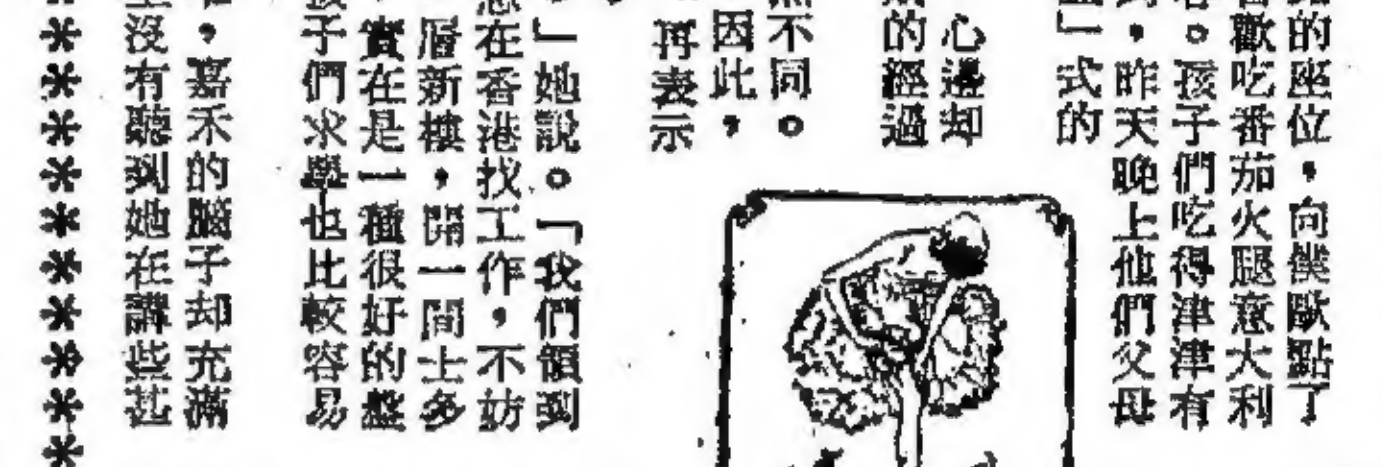 的座位，向僕歐點了
歡吃番茄火腿意大利
。孩子們吃得津津有
，昨天晚上他們父母
」式的
心邊却
的經過
不同。
因此，
再表示
」她說。「我們領到
在香港找工作，不妨
層新樓，開一間士多
實在是一種很好的盤
子們求學也比較容易
，嘉禾的腦子却充滿
沒有聽到她在講些甚
＊＊＊＊＊＊＊＊＊